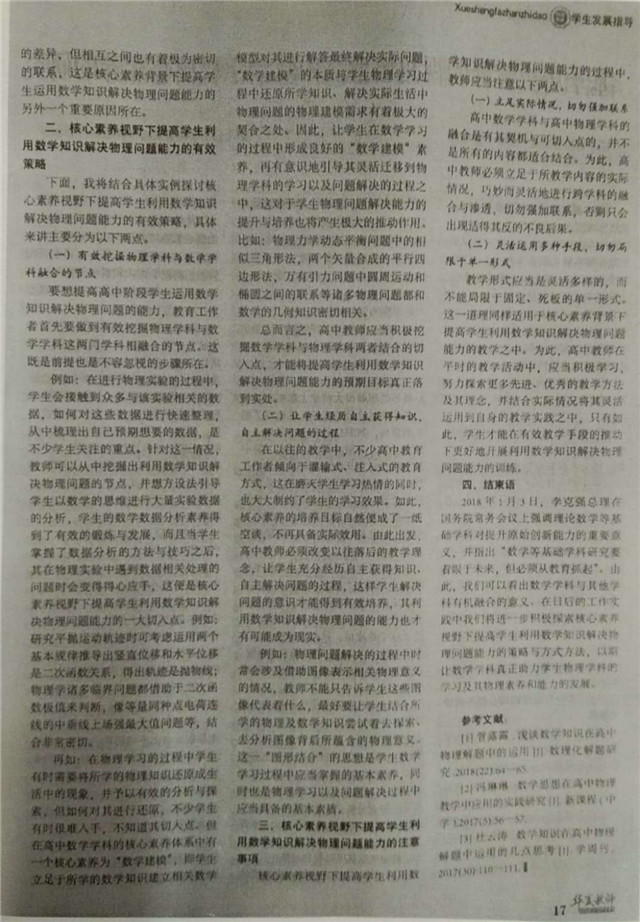 Xueshengfazhanzhidao 学生发展指导
的差异，但相互之间也有着极为密切
的联系，这是核心素养背景下提高学
生运用数学知识解决物理问题能力的
另外一个重要原因所在。
二、核心素养视野下提高学生利
用数学知识解决物理问题能力的有效
策略
下面，我将结合具体实例探讨核
心素养视野下提高学生利用数学知识
解决物理问题能力的有效策略，具体
来讲主要分为以下两点。
（一）有效挖掘物理学科与数学学
科融合的节点
要想提高高中阶段学生运用数学
知识解决物理问题的能力，教育工作
者首先要做到有效挖掘物理学科与数
学学科这两门学科相融合的节点。这
既是前提也是不容忽视的步骤所在。
例如：在进行物理实验的过程中，
学生会接触到众多与该实验相关的数
据，如何对这些数据进行快速整理，
从中梳理出自己预期想要的数据，是
不少学生关注的重点。针对这一情况，
教师可以从中挖掘出利用数学知识解
决物理问题的节点，并想方设法引导
学生以数学的思维进行大量实验数据
的分析，学生的数学数据分析素养得
到了有效的锻炼与发展，而且当学生
掌握了数据分析的方法与技巧之后，
其在物理实验中遇到数据相关处理的
问题时会变得得心应手，这便是核心
素养视野下提高学生利用数学知识解
决物理问题能力的一大切入点。例如：
研究平抛运动轨迹时可考虑运用两个
基本规律推导出竖直位移和水平位移
是二次函数关系，得出轨迹是抛物线；
物理学诸多临界问题都借助于二次函
数极值来判断，像等量同种点电荷连
线的中垂线上场强最大值问题等，结
合非常密切。
再如：在物理学习的过程中学生
有时需要将所学的物理知识还原成生
活中的现象，并予以有效的分析与探
索，但如何对其进行还原，不少学生
有时很难入手，不知道其切入点。但
在高中数学学科的核心素养体系中有
一个核心素养为“数学建模”，即学生
立足于所学的数学知识建立相关数学
模型对其进行解答最终解决实际问题，
“数学建模”的本质与学生物理学习过
程中还原所学知识、解决实际生活中
物理问题的物理建模需求有着极大的
契合之处。因此，让学生在数学学习
的过程中形成良好的“数学建模”素
养，再有意识地引导其灵活迁移到物
理学科的学习以及问题解决的过程之
中，这对于学生物理问题解决能力的
提升与培养也将产生极大的推动作用。
比如：物理力学动态平衡问题中的相
似三角形法，两个矢量合成的平行四
边形法，万有引力问题中圆周运动和
椭圆之间的联系等诸多物理问题都和
数学的几何知识密切相关。
总而言之，高中教师应当积极挖
掘数学学科与物理学科两者结合的切
入点，才能将提高学生利用数学知识
解决物理问题能力的预期目标真正落
到实处。
（二）让学生经历自主获得知识、
自主解决问题的过程
在以往的教学中，不少高中教育
工作者倾向于灌输式、注入式的教育
方式，这在磨灭学生学习热情的同时，
也大大制约了学生的学习效果。如此，
核心素养的培养目标自然便成了一纸
空谈，不再具备实际效用。由此出发，
高中教师必须改变以往落后的教学理
念，让学生充分经历自主获得知识、
自主解决问题的过程，这样学生解决
问题的意识才能得到有效培养，其利
用数学知识解决物理问题的能力也才
有可能成为现实。
例如：物理问题解决的过程中时
常会涉及借助图像表示相关物理意义
的情况，教师不能只告诉学生这些图
像代表着什么，最好要让学生结合所
学的物理及数学知识尝试着去探索、
去分析图像背后所蕴含的物理意义。
这一“图形结合”的思想是学生数学
学习过程中应当掌握的基本素养，同
时也是物理学习以及问题解决过程中
应当具备的基本素搞。
三、核心素养视野下提高学生利
用数学知识解决物理问题能力的注意
事项
核心素养视野下提高学生利用数
学知识解决物理问题能力的过程中，
教师应当注意以下两点。
（一）立足实际情况，切勿强加联系
高中数学学科与高中物理学科的
融合是有其契机与可切入点的，并不
是所有的内容都适合结合。为此，高
中教师必须立足于所教学内容的实际
情况，巧妙而灵活地进行跨学科的融
合与渗透，切勿强加联系，否则只会
出现适得其反的不良后果。
（二）灵活运用多种手段，切勿局
限于单一形式
教学形式应当是灵活多样的，而
不能局限于固定、死板的单一形式。
这一道理同样适用于核心素养背景下
提高学生利用数学知识解决物理问题
能力的教学之中。为此，高中教师在
平时的教学活动中，应当积极学习、
努力探索更多先进、优秀的教学方法
及其理念，并结合实际情况将其灵活
运用到自身的教学实践之中，只有如
此，学生才能在有效教学手段的推动
下更好地开展利用数学知识解决物理
问题能力的训练。
四、结束语
2018年1月3日，李克强总理在
国务院常务会议上强调理论数学等基
础学科对提升原始创新能力的重要意
义，并指出“数学等基础学科研究要
着眼于未来，但必须从教育抓起”。由
此，我们可以看出数学学科与其他学
科有机融合的意义。在日后的工作实
践中我们将进一步积极探索核心素养
视野下提高学生利用数学知识解决物
理问题能力的策略与方式方法，以期
让数学学科真正助力学生物理学科的
学习及其物理素养和能力的发展。
参考文献：
[1]曾露露.浅谈数学知识在高中
物理解题中的运用[J].数理化解题研
究,2018(22):64—65.
[2]冯琳琳.数学思想在高中物理
教学中应用的实践研究[J].新课程(中
学),2017(5):56—57.
[3]杜云涛.数学知识在高中物理
解题中运用的几点思考[J].学周刊,
2017(30):110—111.
17 华夏教师